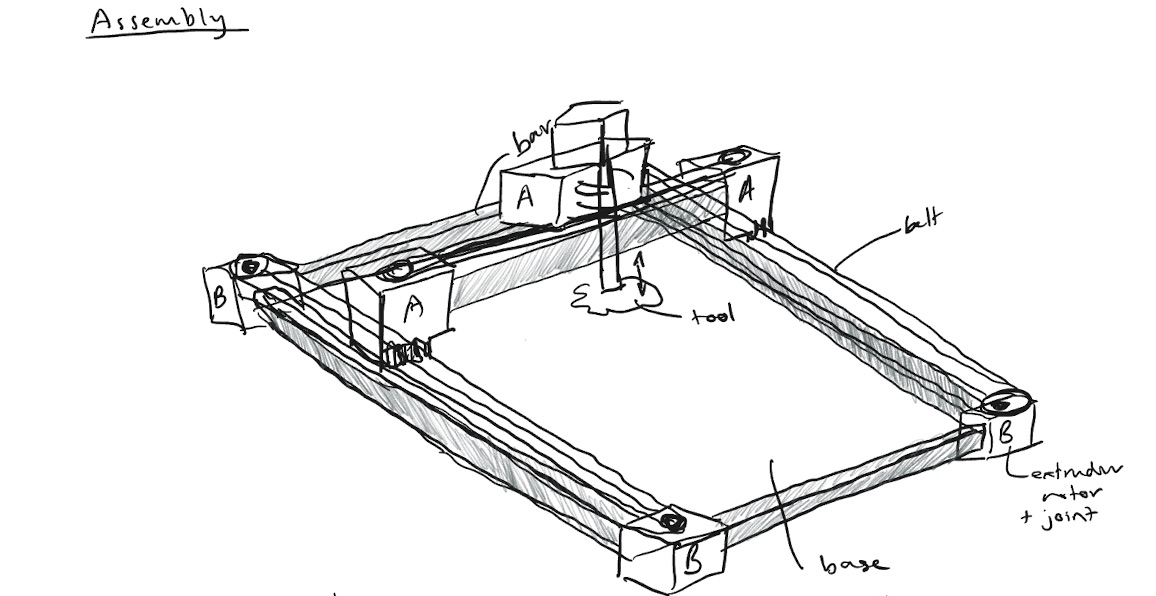 Assembly
bar
A
A
belt
B
A
tool
B
extruder
motor
+ joint
B
base